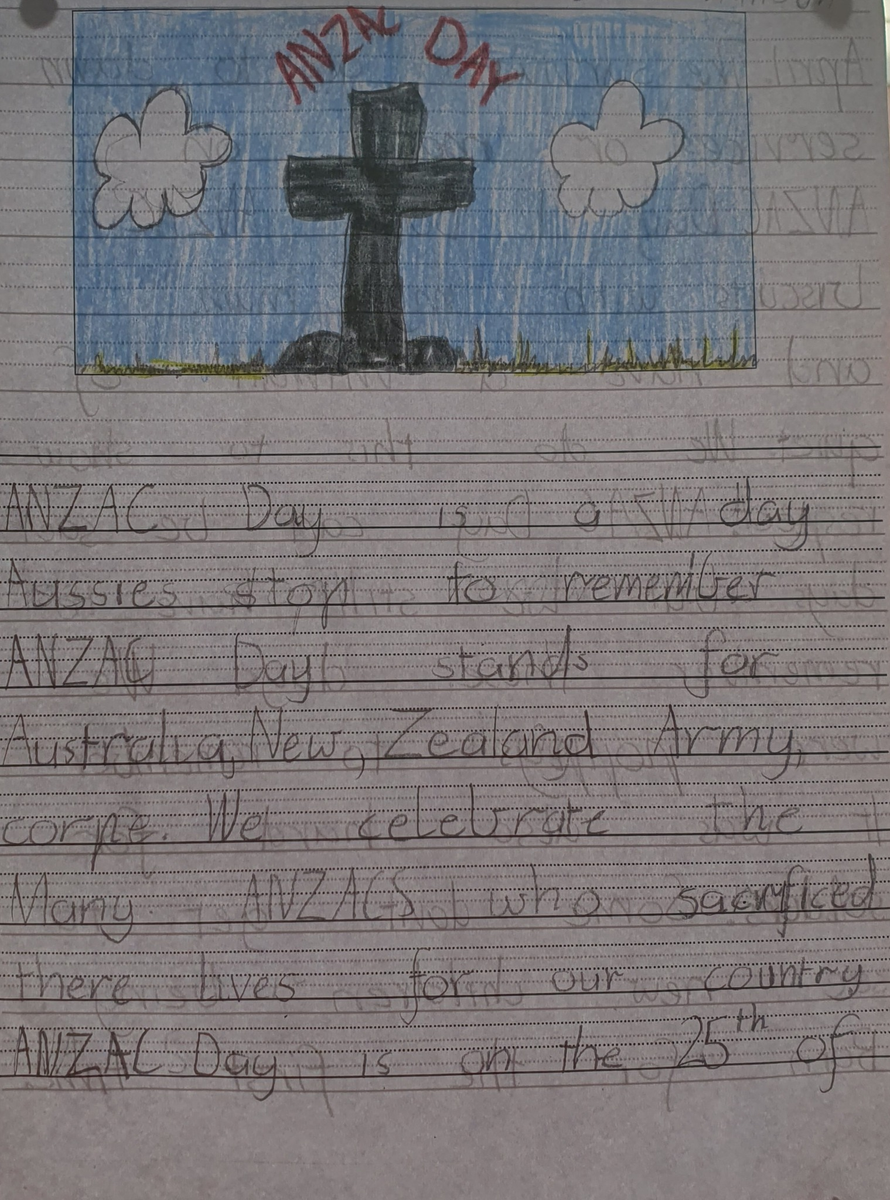 ANZAC DAY
ANZAC Day is a day
Aussies stop to remember
ANZAC Day stands for
Australia, New, Zealand Army,
corpe. We celebrate the
Many ANZACS who sacrificed
there lives for our country
ANZAC Day is on the 25th of